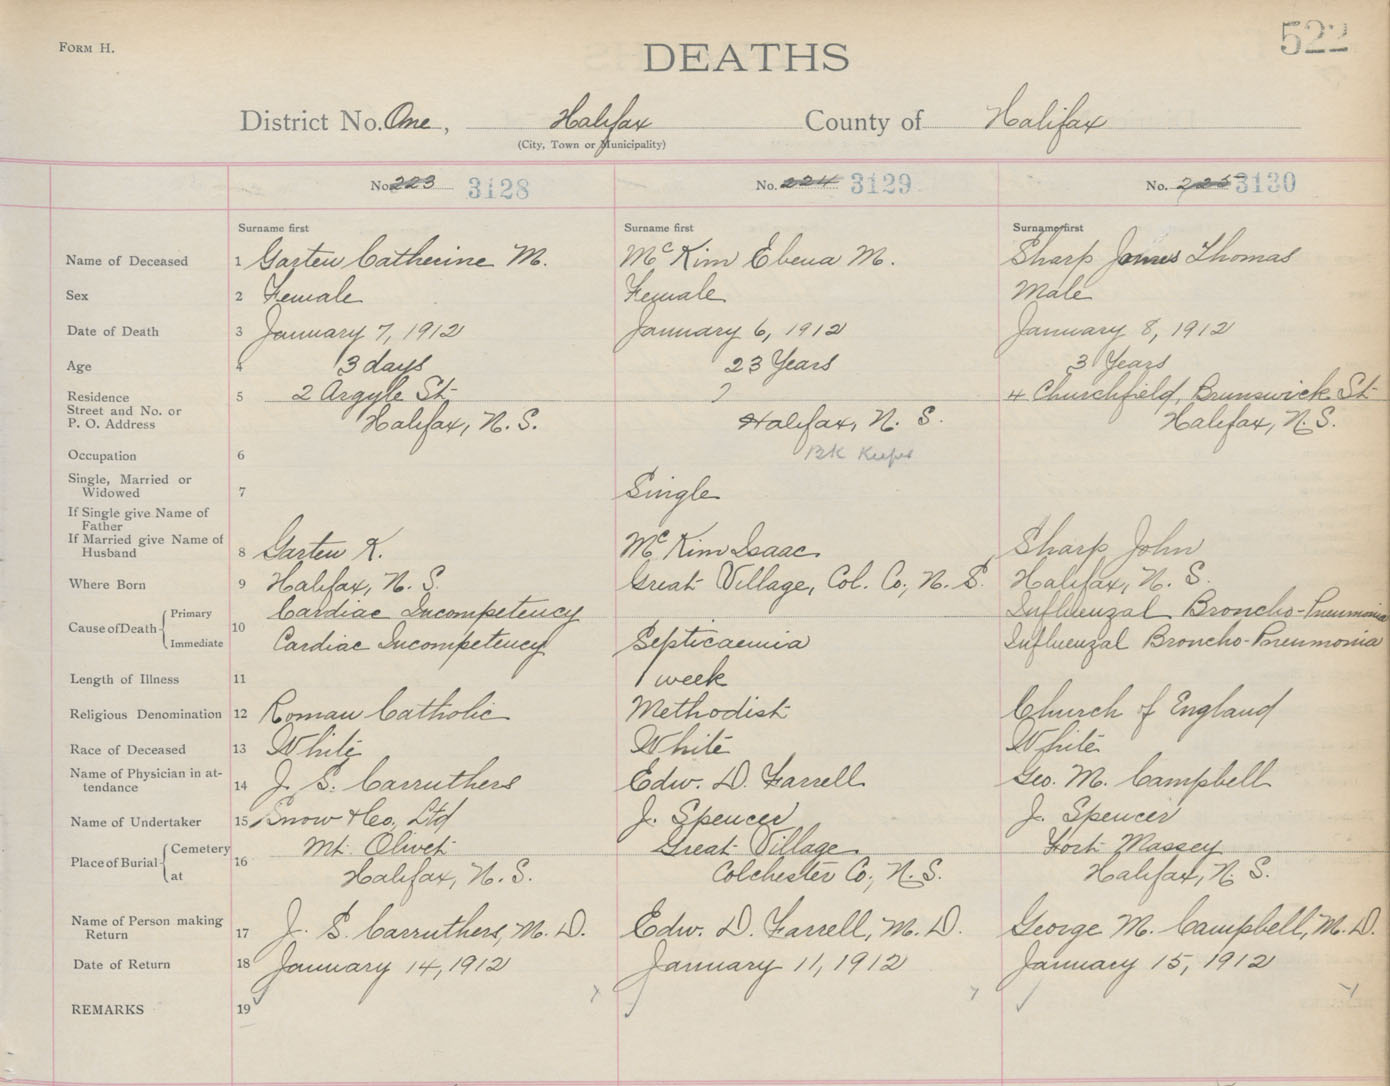 FORM H.
DEATHS
522
District No. One, Halifax County of Halifax
(City, Town or Municipality)
No. 223 3128 No. 224 3129 No. 225 3130
Surname first Surname first Surname first
Name of Deceased 1 Garten Catherine M. McKim Ebena M. Sharp James Thomas
Sex 2 Female Female Male
Date of Death 3 January 7, 1912 January 6, 1912 January 8, 1912
Age 4 3 days 23 Years 3 Years
Residence 5 2 Argyle St. ? 4 Churchfield, Brunswick St
Street and No. or
P. O. Address Halifax, N. S. Halifax, N. S. Halifax, N. S.
Occupation 6 BK Keeper
Single, Married or
Widowed 7 Single
If Single give Name of
Father
If Married give Name of
Husband 8 Garten K. McKim Isaac Sharp John
Where Born 9 Halifax, N. S. Great Village, Col. Co., N. S. Halifax, N. S.
Cause of Death 10 Primary Cardiac Incompetency Influenzal Broncho-Pneumonia
Immediate Cardiac Incompetency Septicaemia Influenzal Broncho-Pneumonia
Length of Illness 11 1 week
Religious Denomination 12 Roman Catholic Methodist Church of England
Race of Deceased 13 White White White
Name of Physician in at-
tendance 14 J. S. Carruthers Edw. D. Farrell Geo. M. Campbell
Name of Undertaker 15 Snow & Co, Ltd J. Spencer J. Spencer
Place of Burial 16 Cemetery Mt. Olivet Great Village Fort Massey
at Halifax, N. S. Colchester Co., N. S. Halifax, N. S.
Name of Person making
Return 17 J. S. Carruthers, M. D. Edw. D. Farrell, M. D. George M. Campbell, M. D.
Date of Return 18 January 14, 1912 January 11, 1912 January 15, 1912
REMARKS 19